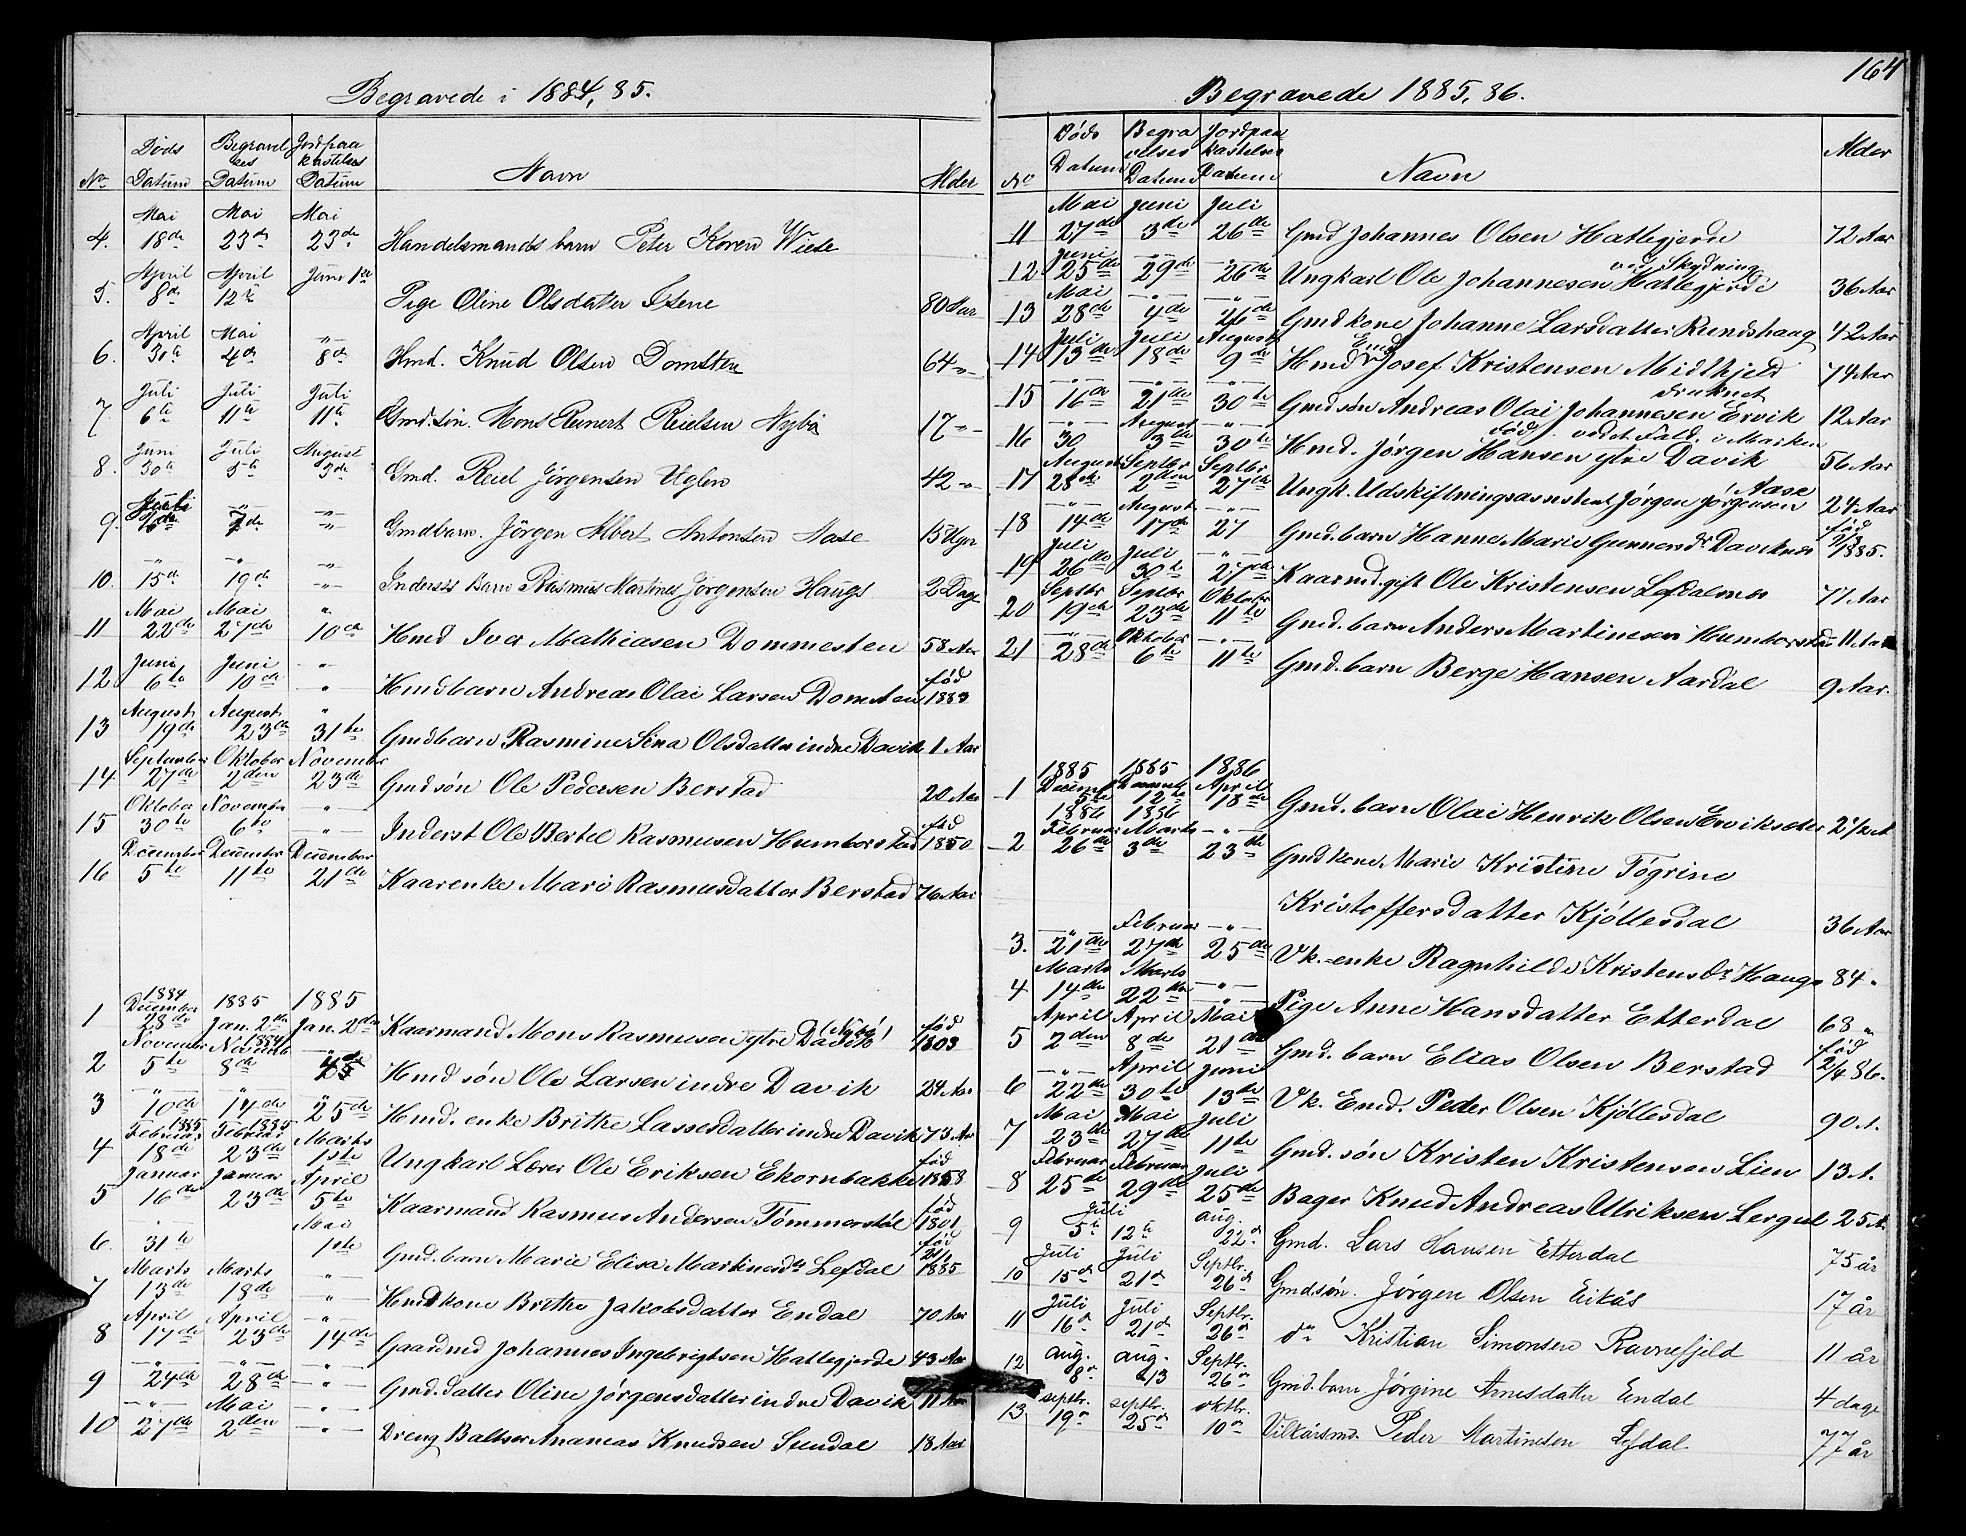 Begravede i 1884, 85.
No Døds Datum Begravelses Datum Jordpaakastelses Datum Navn Alder
4. Mai 18de Mai 23de Mai 23de Handelsmands barn Peter Koren Wiese
5. April 8de April 12te Juni 1te Pige Oline Olsdatter Stene 80 Aar
6. April 30te Mai 4de -"- 8de Hmd. Knud Olsen Domsten 64 -"-
7. Juli 6te Juli 11te Juli 11te Gmd. søn. Mons Reinert Reielsen Nybø 17 -"-
8. Juni 30te Juli 5te August 3de Gmd. Reiel Jørgensen Uglen 42 -"-
9. Juli -"- 7de -"- -"- Gmdbarn. Jörgen Albert Antonsen Aase 15 Uger
10. -"- 15de -"- 19de -"- -"- Indersts Barn Rasmus Martines Jørgensen Haugs 2 Dage
11 Mai 22de Mai 27de " 10de Hmd Iver Mathiasen Dommesten 58 Aar
12 Juni 6te Juni 10de -"- " Hmdbarn Andreas Olai Larsen Domsten fød 1883
13 August 19de August 23de " 31te Gmdbarn Rasmine Sina Olsdatter indre Davik 1 Aar
14 September 27de Oktober 2den November 23de Gmdsøn Ole Pedersen Berstad 20 Aar
15 Oktober 30te November 6te -"- -"- Inderst Ole Bertel Rasmusen Humborstad fød 1850
16 December 5te December 11te December 21de Kaarenke Mari Rasmusdatter Berstad 76 Aar
1 1884 December 28de 1885 Jan. 2den 1885 Jan. 2den Kaarmand Mons Rasmusen ytre Davik (Nybø) fød 1803
2 November 5te 1884 Novemb 8de -"- 25 Hmd søn Ole Larsen indre Davik 24 Aar
3 -"- 10de -"- 14de " 25de Hmd. enke Brithe Lassesdatter indre Davik 73 Aar
4 1885 Februar 18de 1885 Februar 23de Marts 1ste Ungkarl Lærer Ole Eriksen Ekornbakke fød 1858
5 Januar 16de Januar 23de April 5te Kaarmand Rasmus Andersen Tømmerstøl fød 1801
6. " 31te Mai 1ste Gmd. barn Marie Elisa Markusdtr Lefdal fød 1885
7 Marts 13de Marts 18de -"- " Hmdkone Brithe Jakobsdatter Endal 70 Aar
8 April 17de April 23de -"- 14de Gaardmd Johannes Ingebrigtsen Hatlegjerde 43 Aar
9 -"- 24de -"- 28de -"- -"- Gmd. datter Oline Jørgensdatter indre Davik 11 Aar
10 -"- 27de Mai 2den -"- -"- Dreng Baltser Ananias Knudsen Sundal 18 Aar
164
Begravede 1885, 86.
No Døds Datum Begravelses Datum Jordpaakastelses Datum Navn Alder
11 Mai 27de Juni 3de Juli 26de Gmd Johannes Olsen Hatlegjerde 72 Aar
12 Juni 25de -"- 29de -"- 26de Ungkarl Ole Johannesen Hatlegjerde ved Skydning 36 Aar
13 Mai 28de -"- 4de -"- 26de Gmdkone Johanne Larsdatter Rundehaag 42 Aar
14 Juli 13de Juli 18de August 9de Hmd Enkm Josef Kristensen Midthjeld 74 Aar
15 -"- 16de -"- 21de -"- 30te Gmdsøn Andreas Olai Johannesen Ervik druknet 12 Aar
16 -"- 30 August 3de -"- 30te Hmd. Jørgen Hansen ytre Davik død vedet Fald i Marken 56 Aar
17 August 28de Septbr 2den Septbr 27de Ungk. Udskiftningsassistent Jørgen Jørgensen Aase 24 Aar
18 -"- 14de August 17de -"- 27 Gmd. barn Hanne Marie Gunnersdr Daviknes fød 1885.
19 Juli 26de Juli 30te -"- 27de Kaarmd. gift Ole Kristensen Lefdalsnes 77 Aar
20 Septbr 19de Septbr 23de Oktober 11te Gmd. barn Anders Martinesen Humborstad 11 Aar
21 -"- 28de Oktober 6te -"- 11te Gmd. barn Berge Hansen Aardal 9 Aar.
1 1885 Decemb 5te 1885 Decemb 12te 1886 April 18de Gmd. barn Olai Henrik Olsen Erviksæter 2 1/2 A
2 1886 Februar 26de 1886 Marts 3de -"- 23de Gmdkone Marie Kristine Tøgrine
Kristoffersdatter Kjøllesdal 36 Aar
3. -"- 21de Februar 27de -"- 25de Vk.-enke Ragnhilde Kristensdr Hauge 84 "
4 Marts 14de Marts 22de -"- Pige Anne Hansdatter Etterdal 68 "
5 April 2den April 8de Mai 21de Gmd. barn Elias Olsen Berstad fød 2/4 86.
6 -"- 22de April 30te Juni 13de Vk. Emd. Peder Olsen Kjøllesdal 90 A.
7 Mai 23de Mai 27de Juli 11te Gmd. søn Kristen Kristensen Lien 13 A.
8 Februar 25de Februar 29de Juli 25de Bager Knud Andreas Ulriksen Lergul 25 A.
9 Juli 5te 12te aug. 22d Gmd. Lars Hansen Etterdal 75 år
10 Juli 15de Juli 21d Septbr. 26d Gmdsøn. Jørgen Olsen Eikås 17 år
11 Juli 16d Juli 21d Septbr. 26d do Kristian Simonsen Ravnefjeld 11 år
12 aug. 8d aug. 13 Septbr. 26d Gmd. barn Jørgine Arnesdatter Endal 4 dage
13 septbr. 19d septbr. 25d oktbr. 10d Vilkårsmd. Peder Martinesen Lefdal 77 år